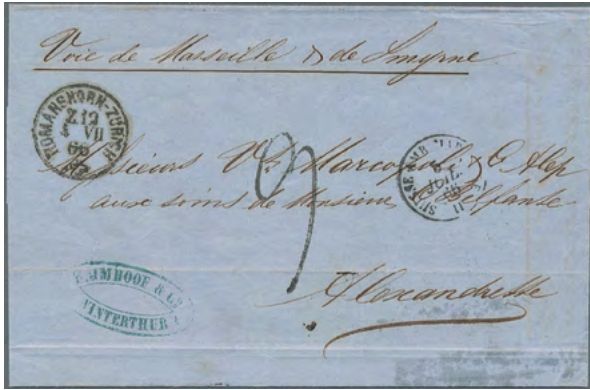 Voie de Marseille & de Smyrne
ROMANSHORN-ZÜRICH
Z12
VII
66
Messieurs Vt. Marcopoli & C Alep
JUIL.
9
aux soins de Monsieur Belfante
IMHOOF & C
WINTERTHUR
Alexandrette